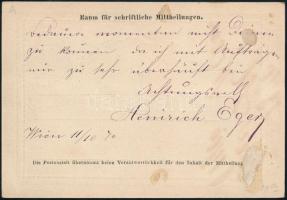 Raum für schriftliche Mittheilungen.
bedaure momentan nicht dienen
zu können da ich mit Aufträgen
nur zu sehr überhäuft bin
Achtungsvoll
Heinrich Eger
Wien 11/10 70
Die Postanstalt übernimmt keine Verantwortlichkeit für den Inhalt der Mittheilung